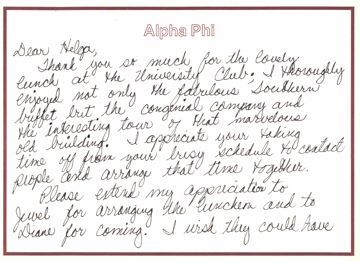 Alpha Phi
Dear Helga,
Thank you so much for the lovely
lunch at the University Club; I thoroughly
enjoyed not only the fabulous Southern
buffet but the congenial company and
the interesting tour of that marvelous
old building. I appreciate your taking
time off from your busy schedule to contact
people and arrange that time together.
Please extend my appreciation to
Jewel for arranging the luncheon and to
Diane for coming. I wish they could have